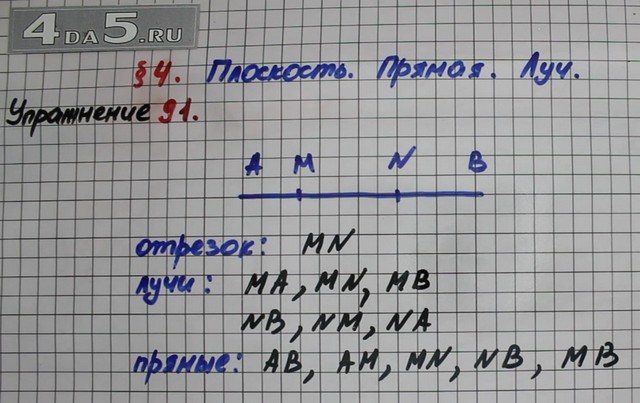 4DA5.RU
§4. Плоскость. Прямая. Луч.
Упражнение 91.
A M N B
отрезок: MN
лучи: MA, MN, MB
NB, NM, NA
прямые: AB, AM, MN, NB, MB